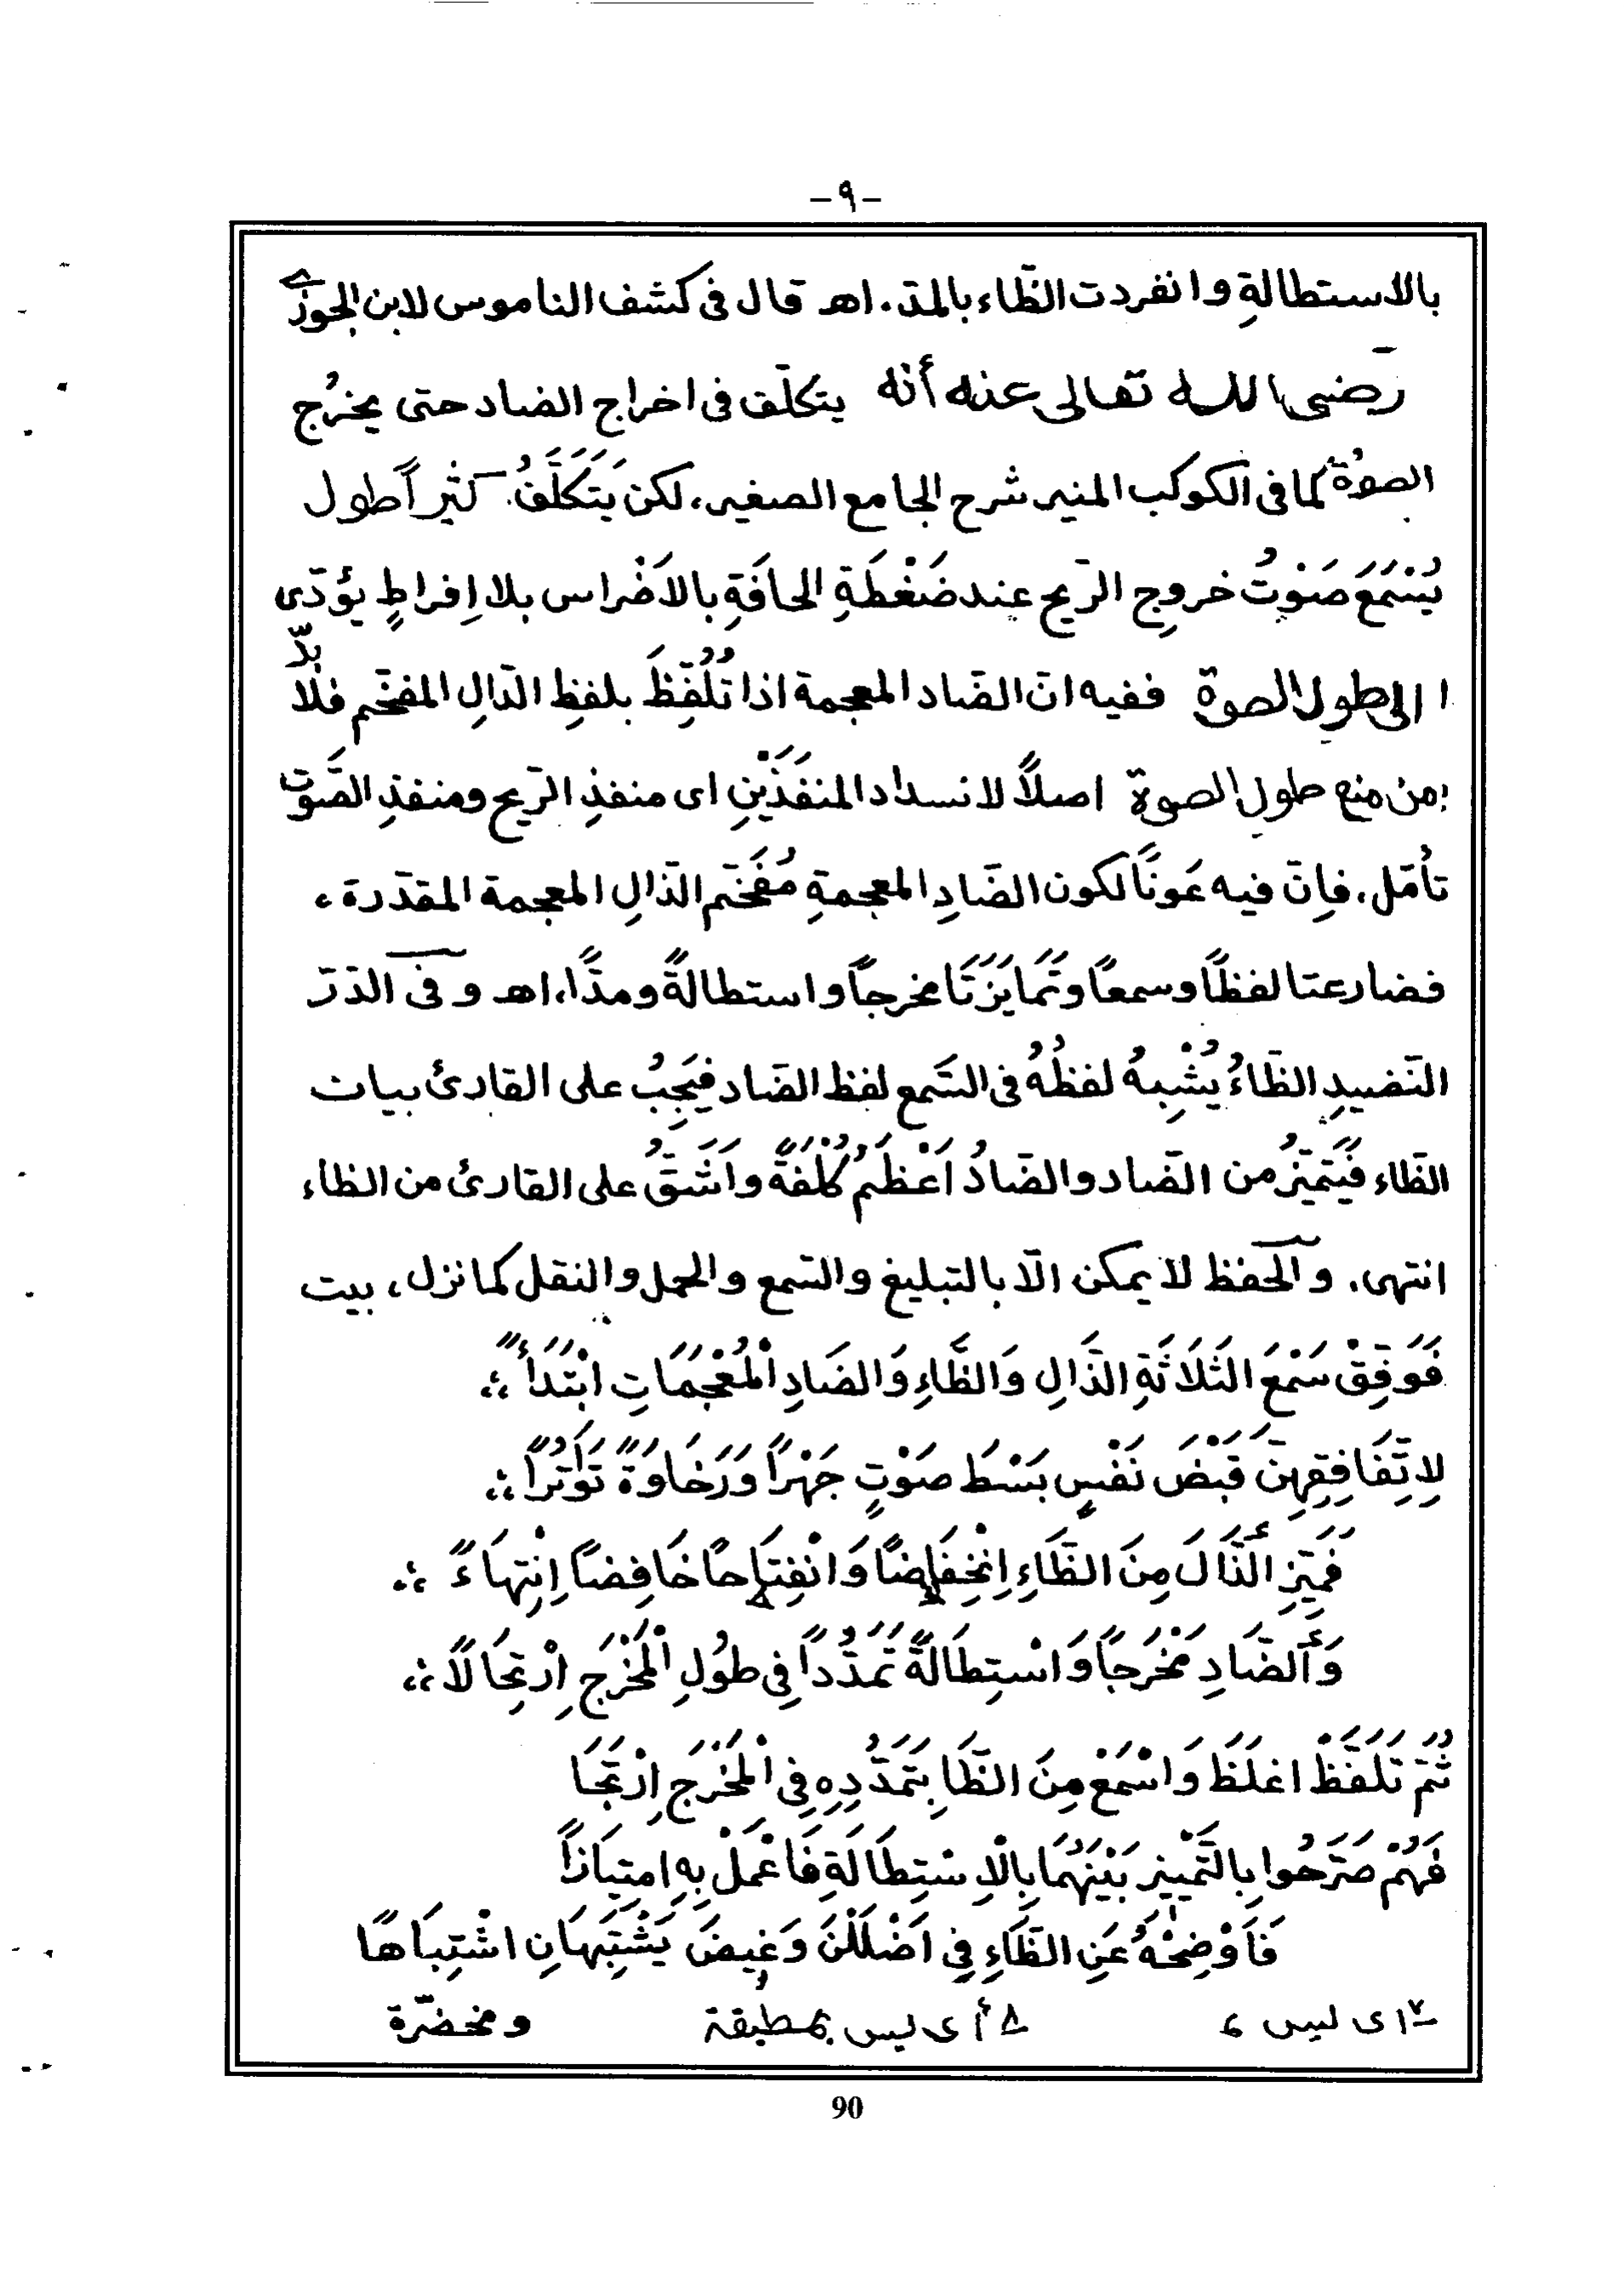 -٩-
بالاستطالةِ وانفردت الظّاء بالمدّ. اهـ قال فى كشف الناموس لابن الجوزى
رضى الله تعالى عنه أنه يتكلّف فى اخراج الضاد حتى يخرُج
الصوة كما فى الكوكب المنير شرح الجامع الصغير، لكن يَتَكَلَّفُ كثيراً طول
يُسْمَعَ صَوْتُ خروجِ الرّيحِ عند ضَغْطَةِ الحافَةِ بالاَضْراس بلا اِفراطٍ يؤدّى
الى طول الصوة ففيه انّ الضّاد المعجمة اذا تُلُفِّظَ بلفظِ الدّالِ المفخّم فلا بدّ
من منع طول الصوة اصلًا لانسداد المنفذَيْنِ اى منفذِ الرّيح ومنفذِ الصَّوت
تأمّل، فاِنّ فيه عَونًا لكون الضّادِ المعجمةِ مُفَخَّم الذّالِ المعجمة المقدّرة،
فضارعتا لفظًا وسمعًا وتَمَايَزَتَا مخرجاً واستطالةً ومدًّا، اهـ وفى الدّرّ
النّضيدِ الظّاءُ يُشْبِهُ لفظُهُ فى السَّمع لفظ الضّاد فيَجِبُ على القارئ بيان
الظّاء فَيَتَمَيَّزُ من الضّاد والضّادُ اَعْظَمُ كُلْفَةً واَشَقُّ على القارئ من الظاء
انتهى. والحفظ لا يمكن الّا بالتبليغ والسّمع والحمل والنقل كما نزل، بيت
فَوَفِّقْ سَمْعَ الثَّلَاثَةِ الذَّالِ وَالظَّاءِ وَالضَّادِ الْمُعْجَمَاتِ ابْتَدَأً ؛
لِاتِّفَاقِهِنَّ قَبْضَ نَفْسٍ بَسْطَ صَوْتٍ جَهْرًا وَرَخَاوَةً تَوَاتُرًا ؛
فَمَيِّزِ الذَّالَ مِنَ الظَّاءِ اِنْخِفَاضًا وَانْفِتَاحًا خَافِضًا اِنْتِهَاءً ؛
وَالضَّادِ مَخْرَجاً وَاسْتِطَالَةً تَمَدُّداً فِى طُولِ الْمَخْرَجِ اِرْتِجَالًا ؛
ثُمَّ تَلَفَّظْ اغلَظَ وَاسْمَعْ مِنَ الظَّا بِتَمَدُّدِهِ فِى الْمَخْرَجِ اِرْتِجَا
فَهُمْ صَرَّحُوا بِالتَّمْيِيزِ بَيْنَهُمَا بِالْاِسْتِطَالَةِ فَاعْمَلْ بِهِ امتِيَازاً
فَاَوْضِحْهُ عَنِ الظَّاءِ فِى اَضْلَلْنَ وَغِيضَ يَشْتَبِهَانِ اشْتِبَاهًا
٧ اى ليس ٨ أى ليس بمطبقة ومخضرّة
90